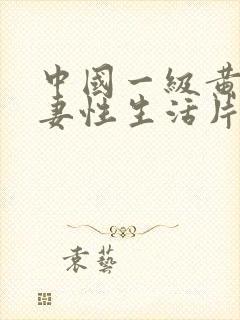 中國一級黃
妻性生活片
袁藝